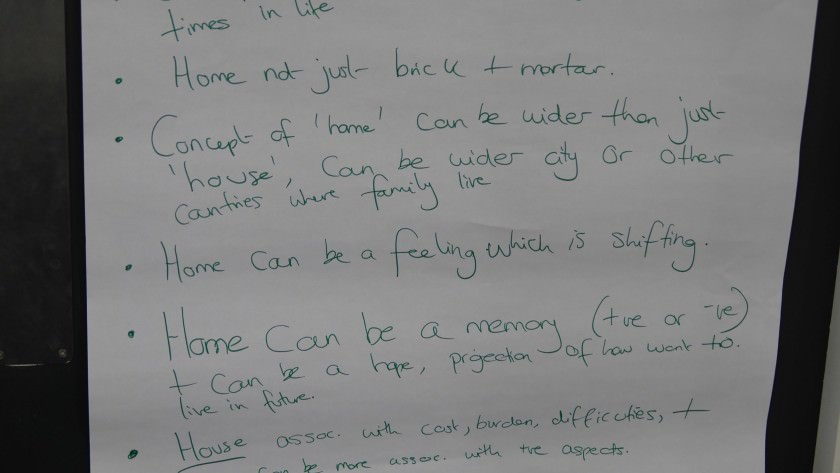 times in life
• Home not just brick + mortar.
• Concept of 'home' can be wider than just
'house', Can be wider city or other
Cantries where family live
• Home can be a feeling which is shifting.
• Home Can be a memory (+ve or -ve)
+ Can be a hope, projection of how want to.
live in future.
• House assoc. with cost, burden, difficulties, +
can be more assoc. with +ve aspects.